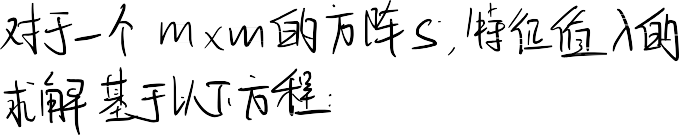 对于一个 m×m的方阵S,特征值λ的
求解基于以下方程: